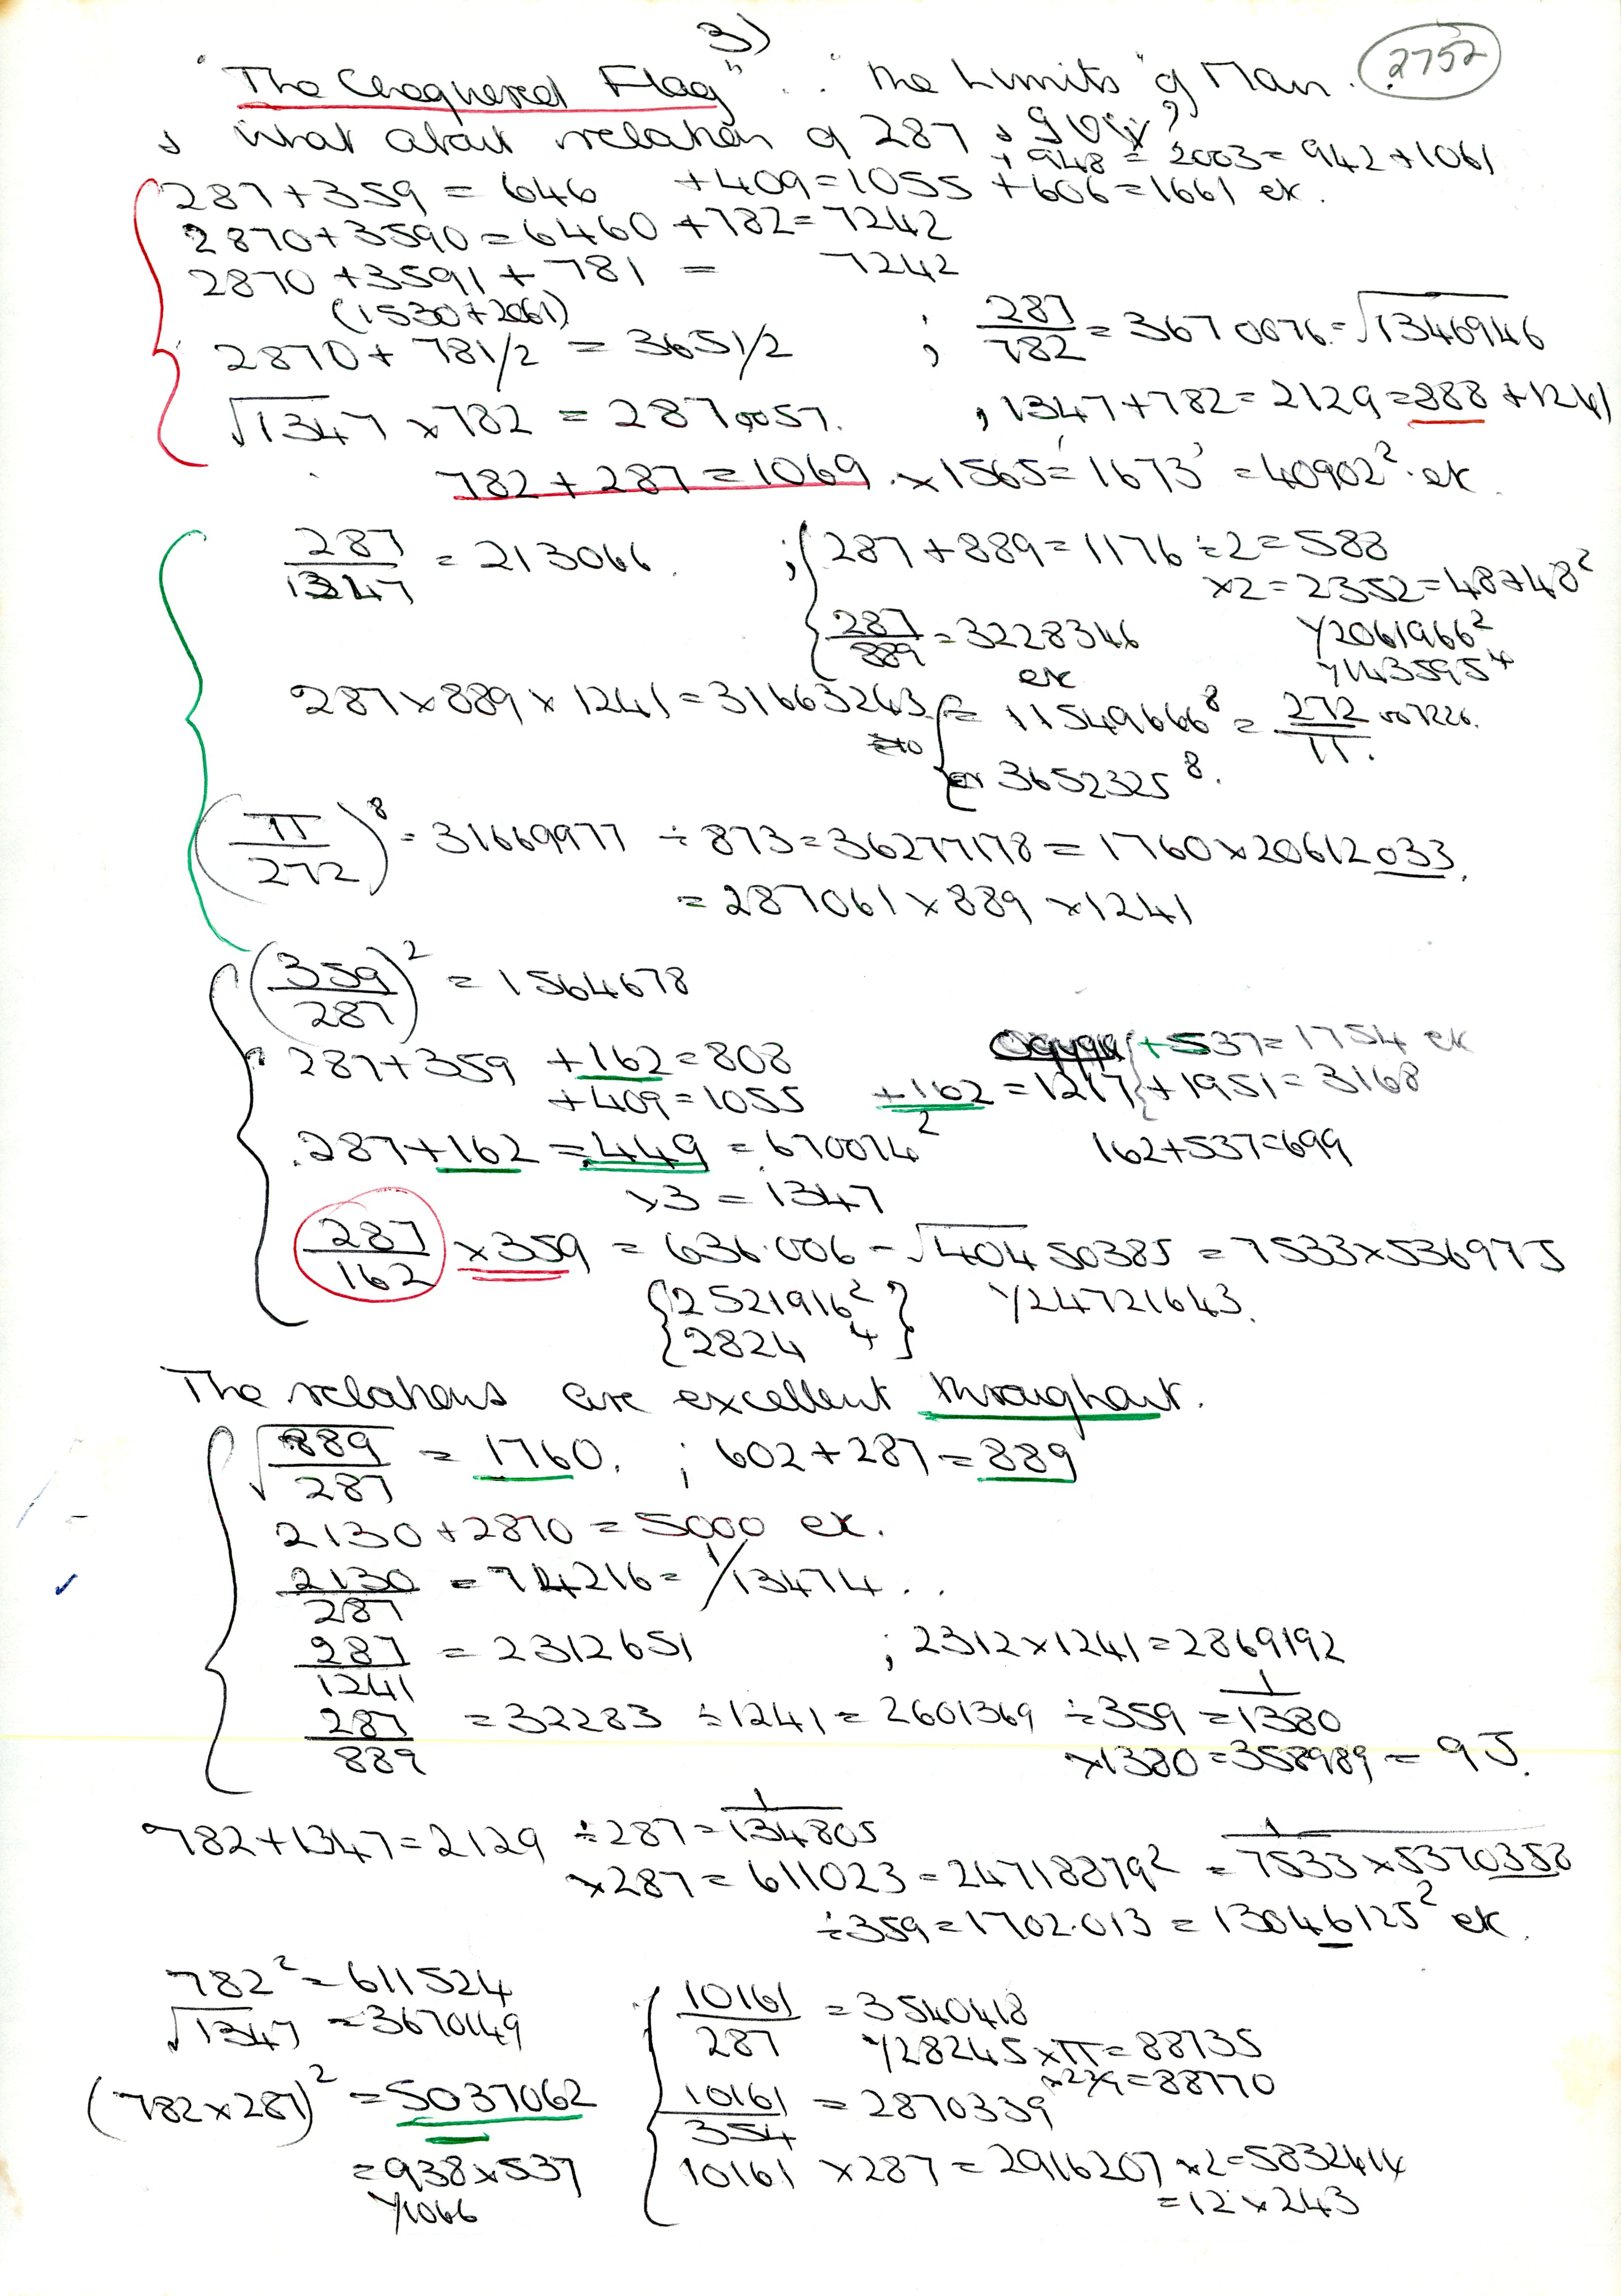 3)
"The Chequered Flag" .. "The Limits of Man. 2752
& what about relation of 287 &
+948 = 2003 = 942+1061
287+359 = 646 +409=1055 +606=1661 ex.
2870+3590=6460+782=7242
2870+3591+781 = 7242
(1530+2061)
2870+781/2 = 3651/2 ; 287/782 = 3670076 = √1346946
√1347 × 782 = 2870057. ; 1347+782=2129=888+1241
782+287=1069 . ×1565='1673' =40902² . ex.
287/1347 = 213066 . ; 287+889=1176 ÷2=588
×2=2352=48748²
287/889 = 3228346 1/2061966²
ex 1/1435954
287×889×1241=31663263 = 11549666⁸ = 272/π 007226.
or 3652325⁸.
(π/272)⁸ = 31669977 ÷873=36277178=1760×20612033.
=287061×889×1241
(359/287)² = 1564678
287+359 +162=808 +537=1754 ex
+409=1055 +162=1217 +1951=3168
287+162=449=670074² 162+537=699
×3=1347
287/162 ×359 = 636.006 = √40450385 = 7533×536975
2521916² 1/24721643.
2824 ⁴
The relations are excellent throughout.
√889/287 = 1760. ; 602+287=889
2130+2870=5000 ex.
2130/287 = 74216 = 1/13474 ..
287/1241 = 2312651 ; 2312×1241=2869192
287/889 = 32283 ÷1241=2601369 ÷359 = 1/1380
×1380=358989=95.
782+1347=2129 ÷287 = 1/134805
×287=611023=24718879² = 1/7533×5370358
÷359=1702.013=13046125² ex.
782²=611524
√1347 =3670149
10161/287 = 3540418
1/28245×π=88735
(782×287)² =5037062
10161/354 = 2870339
=938×537
1/1066
10161 ×287=2916207 ×2=5832414
=12×243